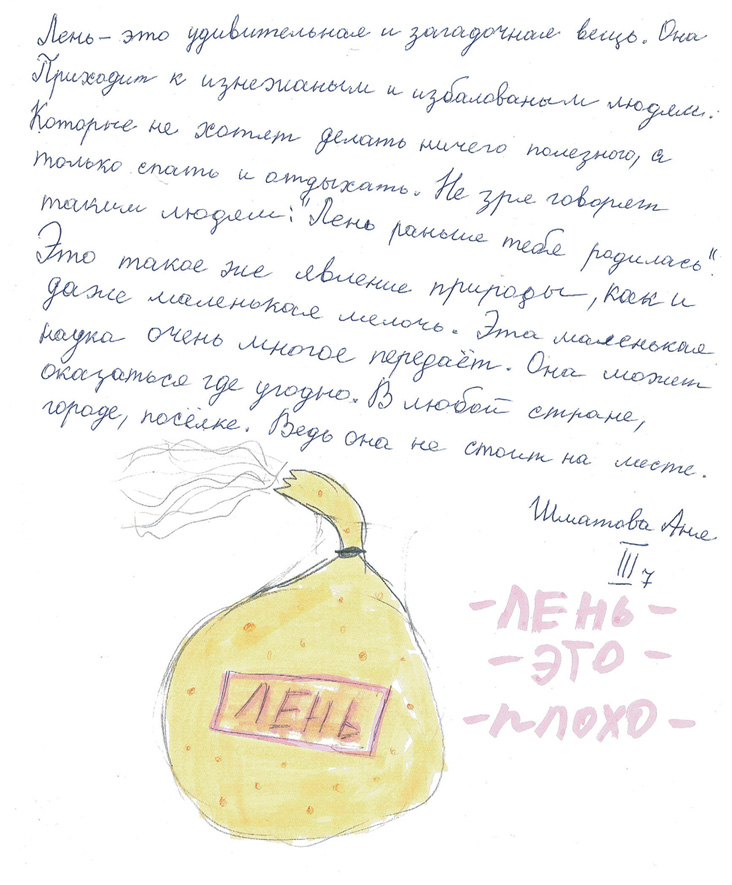 Лень – это удивительная и загадочная вещь. Она
Приходит к изнежаным и избалованым людям.
Которые не хотят делать ничего полезного, а
только спать и отдыхать. Не зря говорят
таким людям: "Лень раньше тебя родилась".
Это такое же явление природы, как и
даже маленькая мелочь. Эта маленькая
наука очень многое передаёт. Она может
оказаться где угодно. В любой стране,
городе, посёлке. Ведь она не стоит на месте.
Шматова Аня
III 7
ЛЕНЬ
-ЛЕНЬ-
-ЭТО-
-ПЛОХО-